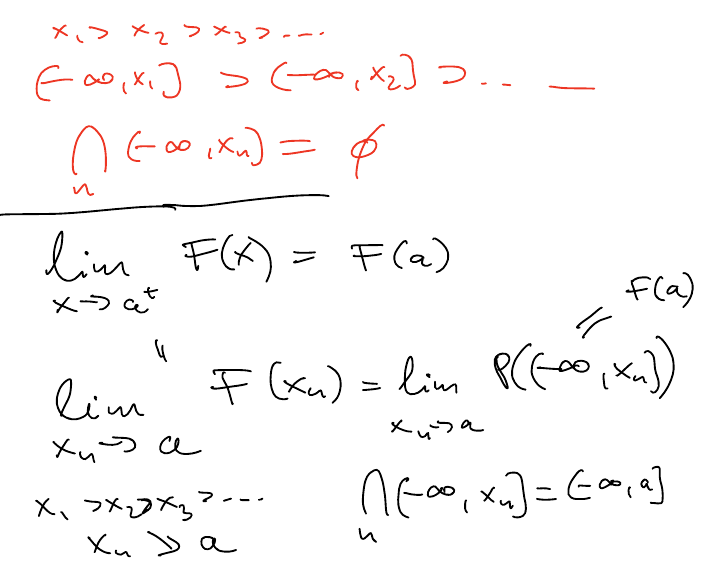 x₁ > x₂ > x₃ > ....
(-∞, x₁] ⊃ (-∞, x₂] ⊃ .. —
⋂ₙ (-∞, xₙ) = ϕ
lim_{x→a⁺} F(x) = F(a)
F(a)
〃 //
lim_{xₙ→a} F(xₙ) = lim_{xₙ→a} P((-∞, xₙ])
x₁ > x₂ > x₃ > ---
⋂ₙ (-∞, xₙ] = (-∞, a]
xₙ > a